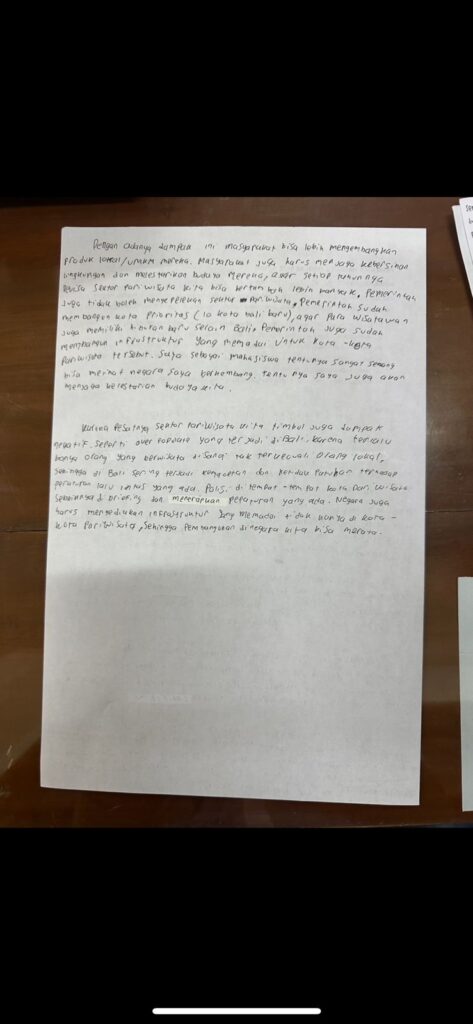 Dengan adanya dampak ini masyarakat bisa lebih mengembangkan
produk lokal/umkm mereka. Masyarakat juga harus menjaga kebersihan
lingkungan dan melestarikan budaya mereka, agar setiap tahunnya
sektor pariwisata kita bisa bertambah lebih banyak. Pemerintah
juga tidak boleh menyepelekan sektor pariwisata, Pemerintah sudah
membangun kota prioritas (10 kota bali baru), agar para wisatawan
juga memiliki baru selain Bali. Pemerintah juga sudah
membangun infrastruktur yang memadai untuk kota-kota
pariwisata tersebut. Saya sebagai mahasiswa tentunya sangat senang
bisa melihat negara saya berkembang. tentunya saya juga akan
menjaga kelestarian budaya kita.
Karena pesatnya sektor pariwisata kita timbul juga dampak
negatif. Seperti over yang terjadi di Bali. karena terlalu
orang yang berwisata disana tak terkecuali orang lokal,
sehingga di Bali sering terjadi kemacetan dan terhadap
peraturan lalu lintas yang ada. Polisi di tempat-tempat kota pariwisata
sebaiknya di briefing dan menerapkan peraturan yang ada. Negara juga
harus menyediakan infrastruktur yang memadai tidak hanya di kota-
kota pariwisata, sehingga pembangunan di negara kita bisa merata.